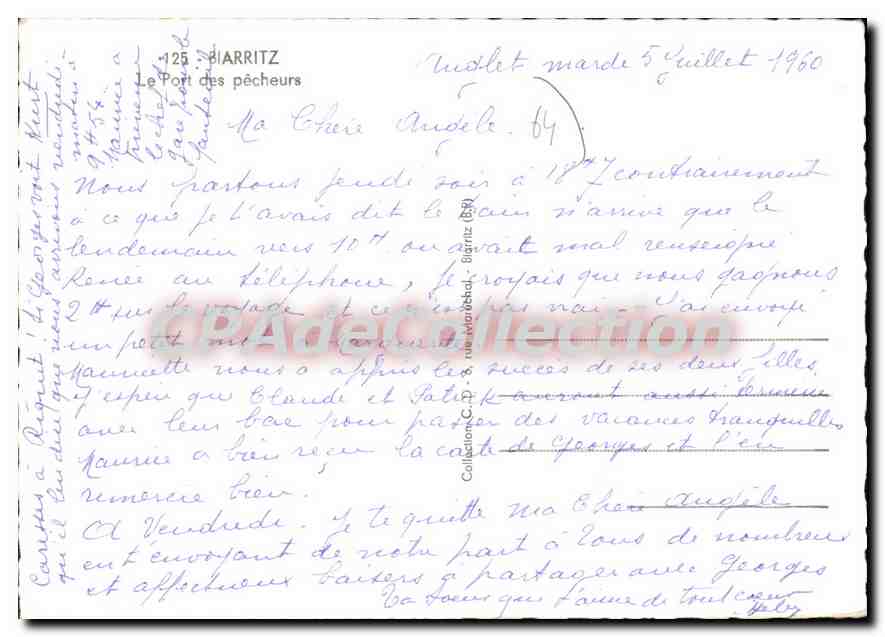 125 - BIARRITZ
Le Port des pêcheurs
Anglet mardi 5 Juillet 1960
Ma Chère Angèle. 64
Nous partons jeudi soir à 18H7 contrairement
à ce que je t'avais dit le train n'arrive que le
lendemain vers 10H on avait mal renseigné
Renée au téléphone, je croyais que nous gagnons
2H sur le voyage et ce n'est pas vrai - J'ai envoyé
un petit mot à Marguerite.
Mauricette nous a appris les succès de ses deux filles
J'espère que Claude et Patrick auront aussi terminé
avec leur bac pour passer des vacances tranquilles
Maurice a bien reçu la carte de Georges et l'en
remercie bien.
A Vendredi. Je te quitte ma Chère Angèle
en t'envoyant de notre part à Tous de nombreux
et affectueux baisers à partager avec Georges
Ta soeur qui t'aime de tout coeur
Caresses à Riquet! Si Georges voit Kurt
qu'il lui dise que nous arrivons vendredi
matin à
9H54
Maurice a
prévenu
le chef de
gare pour le
fauteuil
Collection C. D - 8, rue Maréchal - Biarritz (B.P)
CPAdeCollection